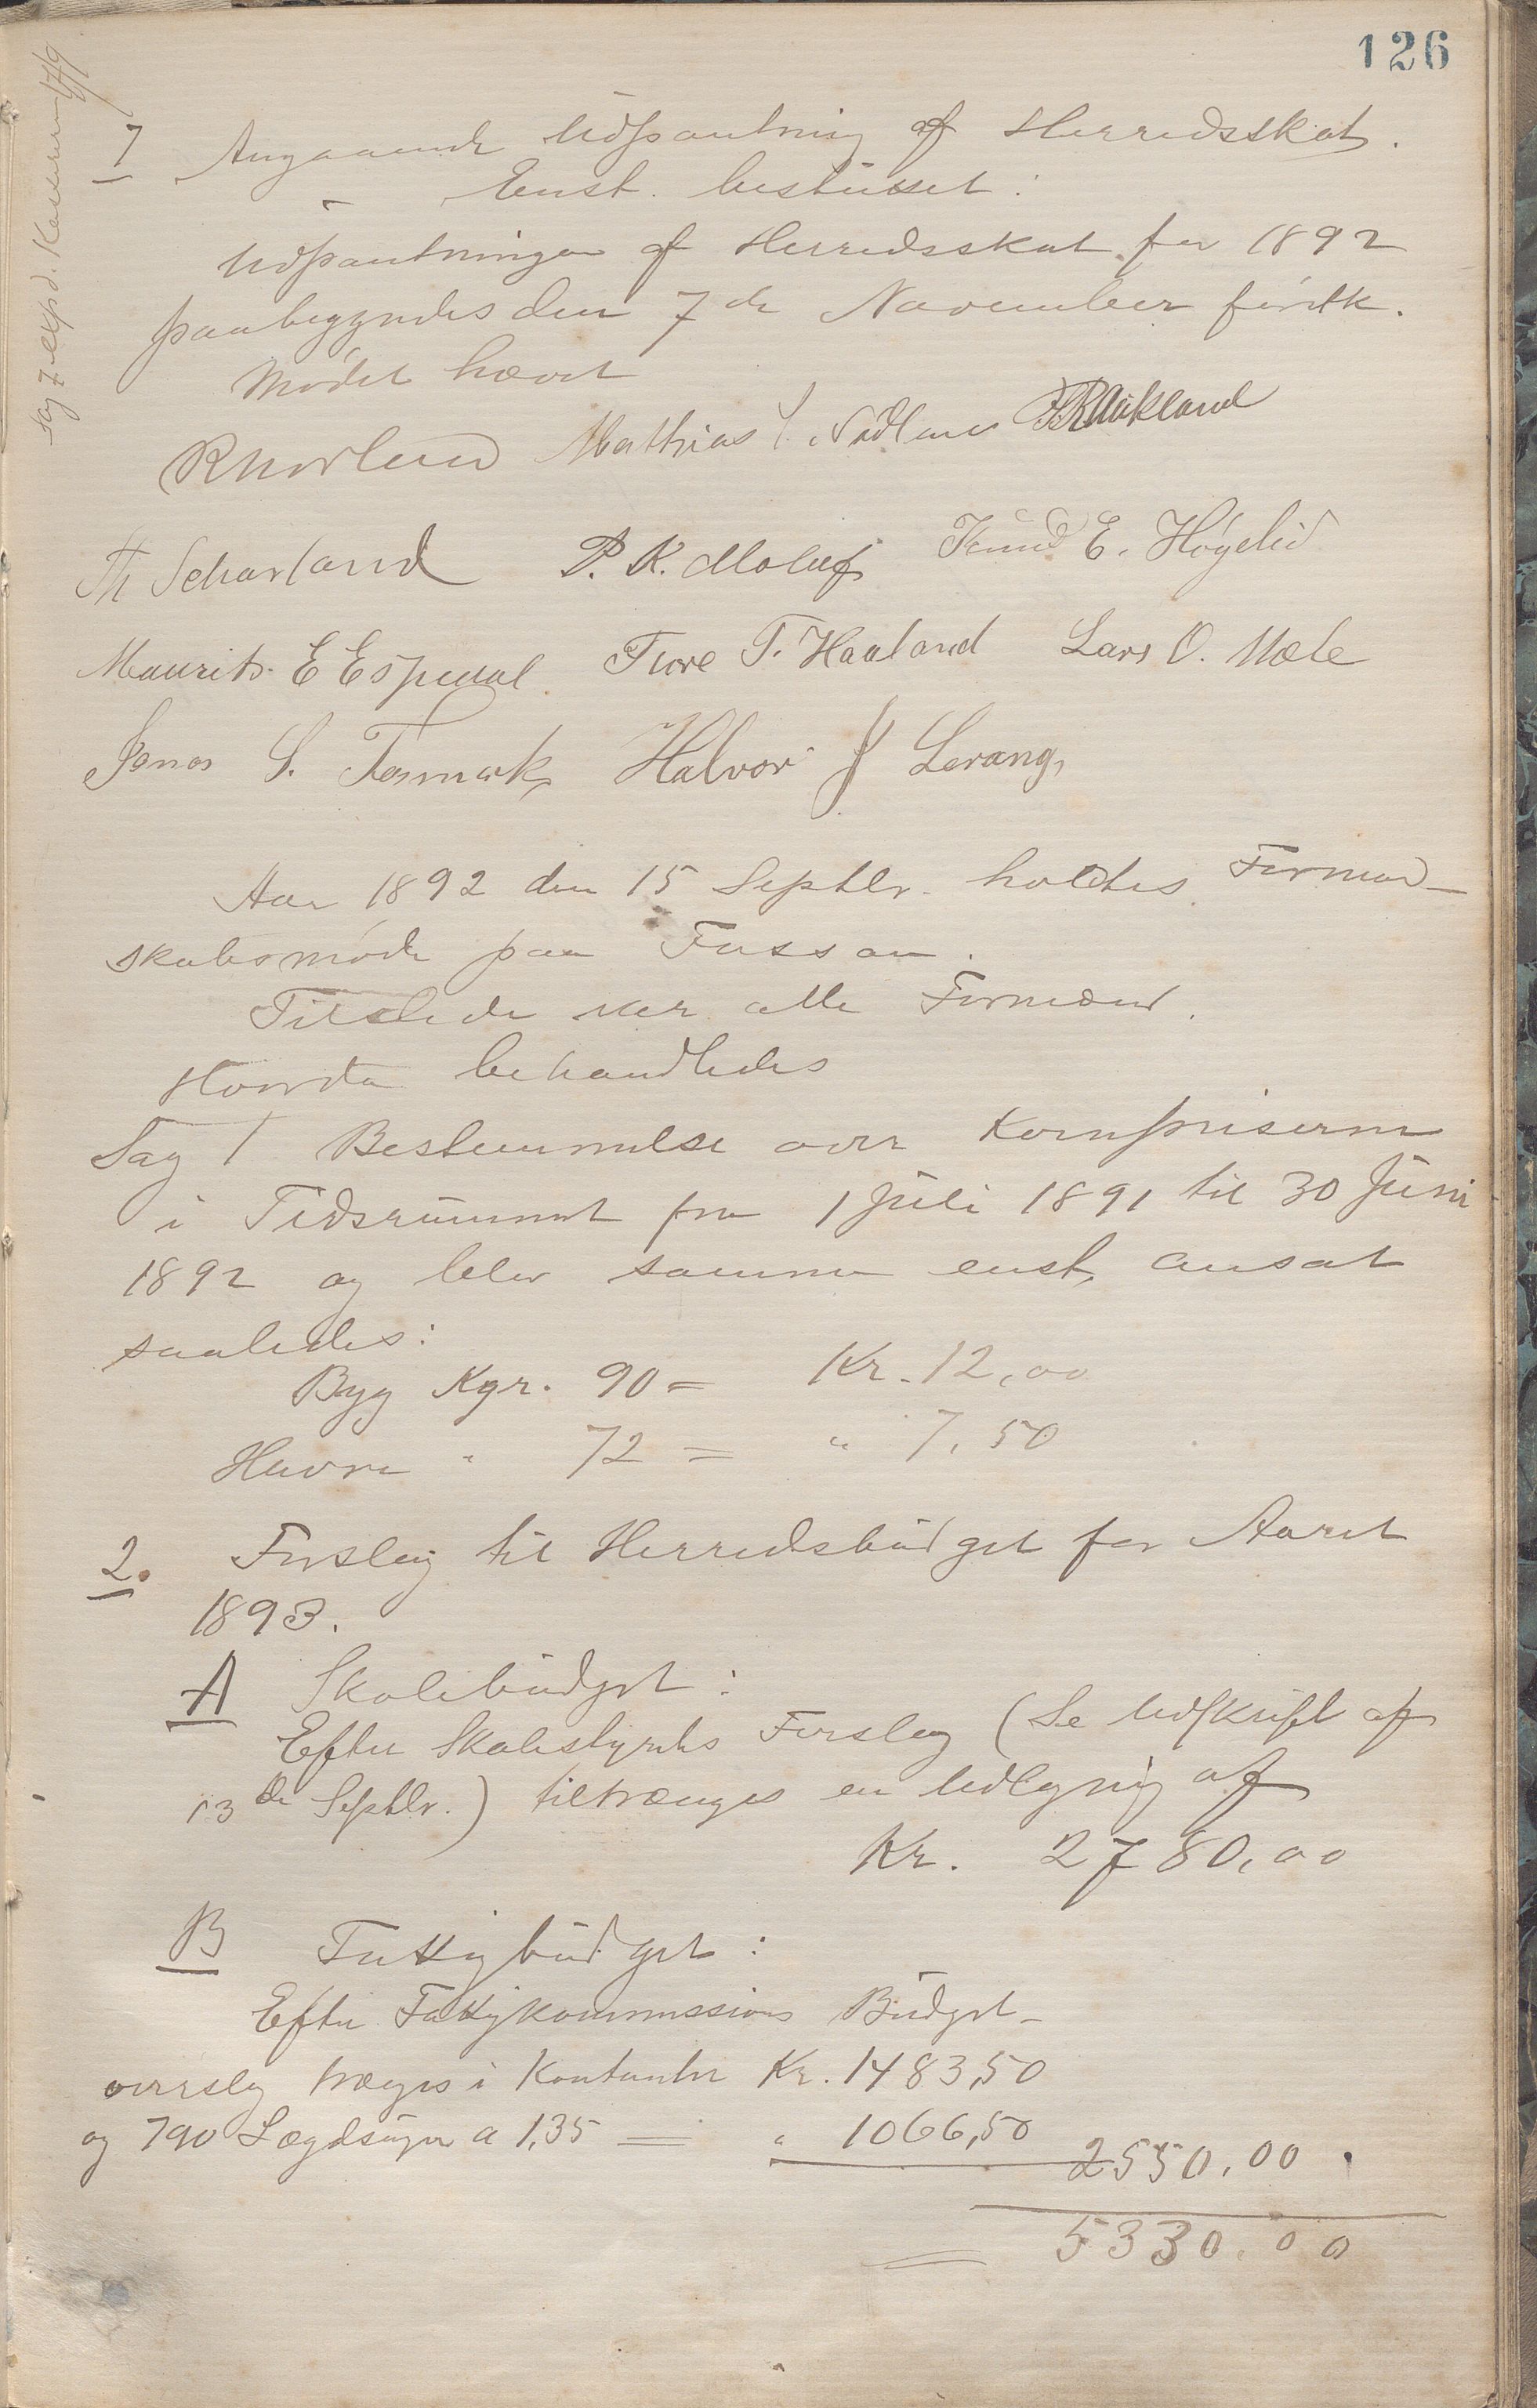 126
Sag 7 expd. Kasseren 17/9
7 Angaaende Udpantning af Herredsskat.
Enst. besluttet:
Udpantningen af Herredsskat for 1892
paabegyndes den 7de November førstk.
Mødet hævet
Mathias
Th Scharland P. K. Moluf Knud E. Høgelid
Maurits E Espedal Tore T. Haaland Lars O. Mæle
Jonas S. Fosmark Halvor J Levang,
Aar 1892 den 15 Septbr. holdtes Formand-
skabsmøde paa Fossan.
Tilstede var alle Formænd.
Hvorda behandledes
Sag 1 Bestemmelse over Kornpriserne
i Tidsrummet fra 1 Juli 1891 til 30 Juni
1892 og blev samme enst. ansat
saaledes:
Byg Kgr. 90 = Kr. 12,00
Havre " 72 = " 7,50
2. Forslag til Herredsbudget for Aaret
1893.
A Skolebudget:
Efter Skolestyrets Forslag (Se Udskrift af
13de Septbr.) tiltrænges en Udligning af
Kr. 2780,00
B Fattigbudget:
Efter Fattigkommissions Budget-
overslag træges i Kontanter Kr. 1483,50
og 790 Lægdsuger a 1,35 = " 1066,50 2550,00.
= 5330.00